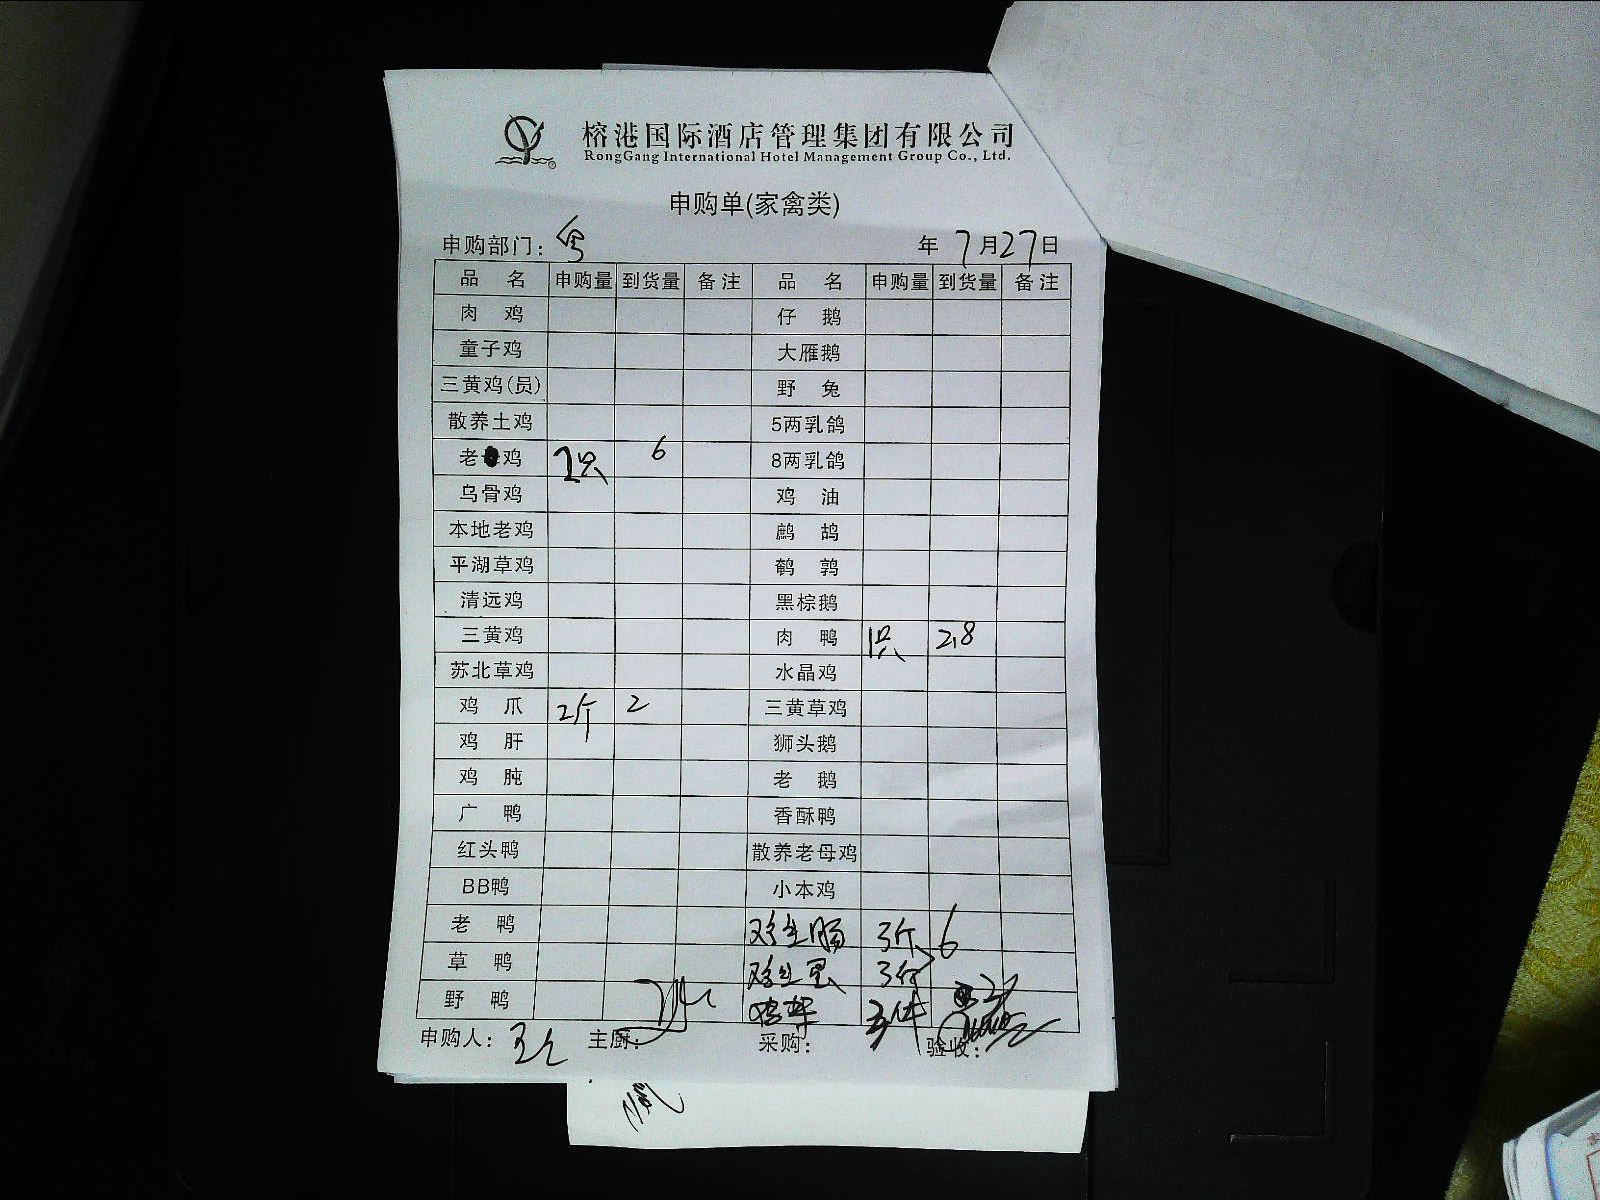 榕港国际酒店管理集团有限公司
RongGang International Hotel Management Group Co., Ltd.
申购单(家禽类)
申购部门: 年 7月27日
品 名 申购量 到货量 备注 品 名 申购量 到货量 备注
肉 鸡 仔 鹅
童子鸡 大雁鹅
三黄鸡(员) 野 兔
散养土鸡 5两乳鸽
老鸡 2只 6 8两乳鸽
乌骨鸡 鸡 油
本地老鸡 鹧 鸪
平湖草鸡 鹌 鹑
清远鸡 黑棕鹅
三黄鸡 肉 鸭 1只 2.8
苏北草鸡 水晶鸡
鸡 爪 2斤 2 三黄草鸡
鸡 肝 狮头鹅
鸡 肫 老 鹅
广 鸭 香酥鸭
红头鸭 散养老母鸡
BB鸭 小本鸡
老 鸭 鸡生肠 3斤 6
草 鸭 3份
野 鸭
申购人: 主厨: 采购: 验收: